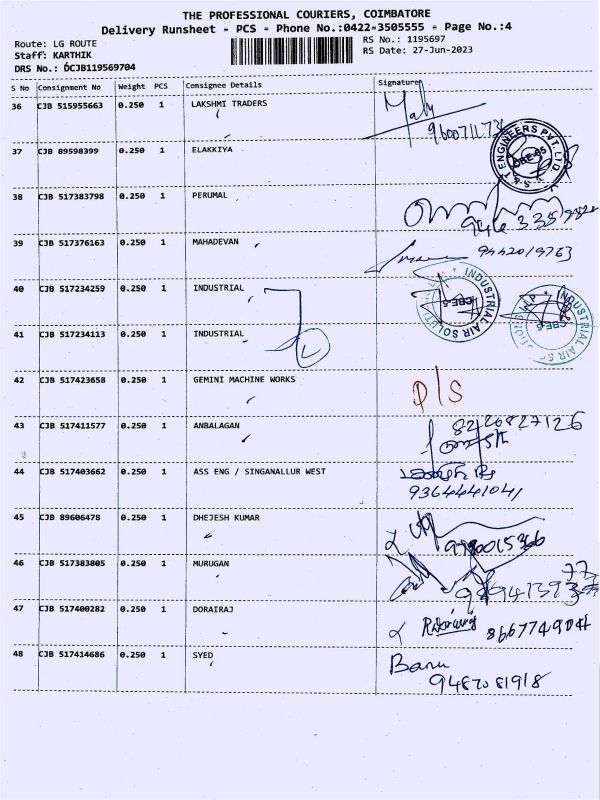 THE PROFESSIONAL COURIERS, COIMBATORE
Delivery Runsheet - PCS - Phone No.:0422-3505555 - Page No.:4
Route: LG ROUTE
RS No.: 1195697
Staff: KARTHIK
RS Date: 27-Jun-2023
DRS No.: DCJB119569704
S No Consignment No Weight PCS Consignee Details Signature
36 CJB 515955663 0.250 1 LAKSHMI TRADERS
37 CJB 89598399 0.250 1 ELAKKIYA
ENGINEERS PVT. LTD.
38 CJB 517383798 0.250 1 PERUMAL
39 CJB 517376163 0.250 1 MAHADEVAN 9442019763
40 CJB 517234259 0.250 1 INDUSTRIAL
INDUSTRIAL AIR
CBE-5
INDUSTRIAL AIR
CBE-5
41 CJB 517234113 0.250 1 INDUSTRIAL
42 CJB 517423658 0.250 1 GEMINI MACHINE WORKS D/S
43 CJB 517411577 0.250 1 ANBALAGAN 8220827126
44 CJB 517403662 0.250 1 ASS ENG / SINGANALLUR WEST
9364441041
45 CJB 89606478 0.250 1 DHEJESH KUMAR
46 CJB 517383805 0.250 1 MURUGAN
47 CJB 517400282 0.250 1 DORAIRAJ 866774904
48 CJB 517414686 0.250 1 SYED Banu
9487081918